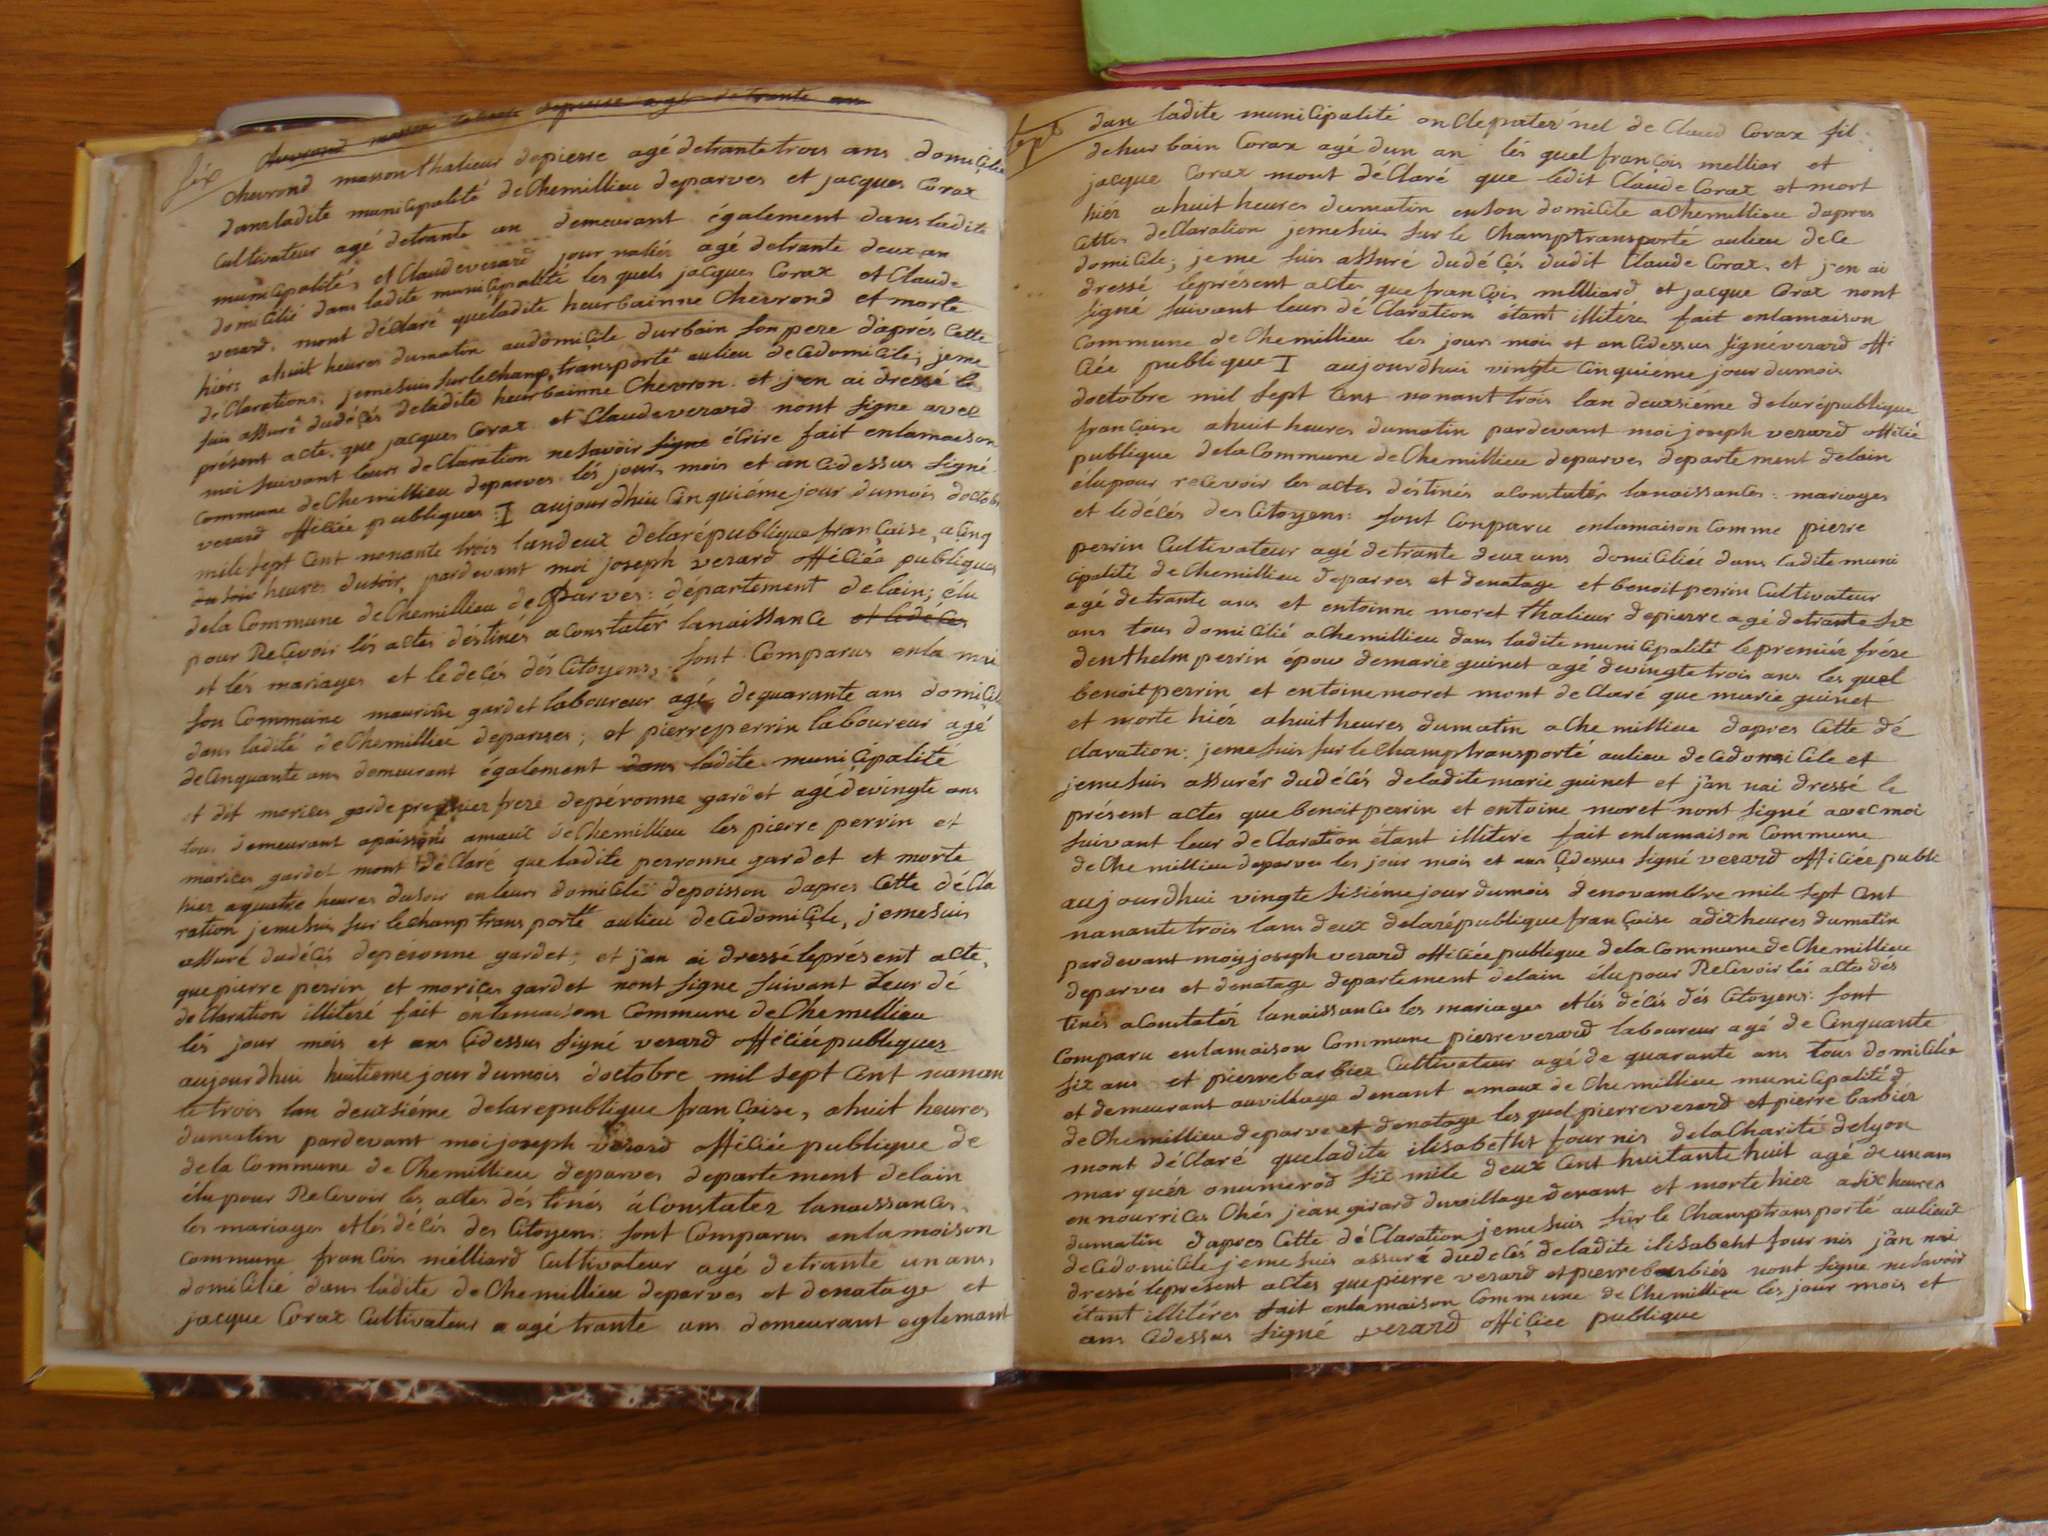 six
chevrond masson talieur depierre agé detrante an
chevrond masson thalieur depierre agé detrantetrois ans domicilie
dansladite municipalité deChemillieu deparves et jacques Corax
Cultivateur agé detrante an demeurant également dans ladite
municipalité, et Claudeverard journaliér agé detrante deux an
domicilié dans ladite municipalité les quels jacques Corax et Claude
verard, mont déClaré queladite heurbainne Chevrond et morte
hiér ahuit heures dumatin audomiçile durbain son pere daprés Cette
déClarations; jemesuis surlechamp transporté aulieu deCedomicile; jeme
suis assuré dudéçés deladite heurbainne Chevron et j'en ai dressé le
présent acte, que jacques Corax et Claudeverard nont signe avec
moi suivant leurs deClaration nesavoir signe écrire fait enlamaison
Commune deChemillieu deparves les jours mois et an Cidessus signé
verard officiée publiques I aujourdhui Cinquiéme jour dumois doctobre
mile sept Cent nonante trois landeux delarépublique française, aCinq
du soir heures dusoir, pardevant moi joseph verard officiée publiques
dela Commune deChemillieu de Parves: département delain; élu
pour Reçevoir lés actes déstinés aConstatér lanaissance et ledéCés
et lés mariages et le deCés dés Citoyens; sont Comparus enla mai
son Commune maurisse gardet laboureur agé dequarante ans domiçil
dans ladité deChemillieu deparves; et pierreperrin laboureur agé
deCinquante ans demeurant également dans ladite municipalité
et dit morices garde premier frere depéronne gardet agé devingte ans
tous demeurant apoissons amaux deChemillieu les pierre perrin et
morices gardet mont déClaré que ladite perronne gardet et morte
hier aquatre heures dusoir enleurs domicile depoisson dapres Cette déCla
ration jemesuis sur lechamp transporté aulieu deCedomiçile, jemesuis
assuré dudéçés depéronne gardet, et j'an ai dressé leprésent acte,
quepierre perrin et moriçes gardet nont signe suivant leur dé
deClaration illitéré fait enlamaison Commune deChemellieu
lés jour mois et ans Çidessus signé verard officiéepubliques
aujourdhui huitiemejour dumois doctobre mil sept Cent nanan
te trois lan deuxsiéme delarepublique françaize, ahuit heures
dumatin pardevant moijoseph verard officiéepublique de
dela Commune de Chemillieu deparves departement delain
élupour ReCevoir les actes destinés áConstater lanaissances
les mariages et lés déCés des Citoyens: sont Comparus enlamaison
Commune françois mélliard Cultivateur agé detrante unans,
domicilié dans ladite deChemillieu deparves et denatage et
jacque Corax Cultivateur a agé trante ans demeurant eglemant
sept
dan ladite municipalité oncle paternél de Claud Corax fil
dehurbain Corax agé dun an lés quel françois mellior et
jacque Corax mont déClaré que ledit Claude Corax et mort
hiér ahuit heures dumatin enson domicile aChemillieu dapres
Cettes deClaration jemesuis sur le Champtransporté aulieu deCe
domicile; jeme suis assuré dudéçés dudit Claude Corax, et j'en ai
dressé leprésent actes que françois milliard et jacque Corax nont
signé suivant leurs déClaration étant illitére fait enlamaison
Commune deChemillieu les jours mois et an Cidessus signéverard offi
Ciée publique I aujourdhui vingte Cinquieme jour dumois
doctobre mil sept Cent nonant trois lan deuxsieme delarépublique
françoise ahuit heures dumatin pardevant moi joseph verard offitié
publique delaCommune deChemillieu deparves departement delain
élupour recevoir les actes déstinés aConstatér lanaissances: mariages
et ledécés desCitoyens: sont Conparu enlamaison Comme pierre
perrin Cultivateur agé detrante deux ans domiciliéé dans ladite muni
cipalité deChemillieu deparves et denatage et benoitperrin Cultivateur
agé detrante ans et entoinne moret thalieur depierre agé detrante six
ans tous domicilié aChemillieu dans ladite municipalité lepremiér frére
denthelm perrin époux demarie guinet agé devingte trois ans les quel
benoitperrin et entoinemoret mont deClaré que marie guinet
et morte hiér ahuitheures dumatin aChemillieu dapres Cette dé
claration: jemesuis sur leChamptransporté aulieu deCedomiCile et
jemesuis assurér dudéCés deladitemarie guinet et j'an nai dressé le
présent actes que benoitperrin et entoine moret nont signé avecmoi
suivant leur deClaration étant illitere fait enlamaison Commune
deChemillieu deparves les jour mois et ans Çidessus signé verard officiéepubli
aujourdhui vingte sisiémejour dumois denovambre mile sept Cent
nanante trois lans deux delarépublique françaize adixheures dumatin
pardevant moijjoseph verard officiéepublique delaCommune deChemillieu
deparves et denatage departement delain élupour ReCevoir lés actes dés
tinés aConstatér lanaissances les mariages et lés déCés dés Citoyens: sont
Comparu enlamaison Commune pierreverard laboureur agé de Cinquante
six ans et pierrebarbier Cultivateur agé de quarante ans tous domicilié
et demeurant auvillage denant amaux deChemillieu municipalité d
deChemillieu deparve et denatage les quel pierreverard et pierre barbier
mont déClaré queladite ilisabetht fournis delaCharité delyon
marquér onumerod six mile deux Cent huitante huit agé deunans
ennourrices Chés jean girard duvillage denant et morte hier adixheures
dumatin dapres Cette déClaration jemesuis sur le Champtransporté aulieux
deCedomiCile jemesuis assuré dudeCés deladite ilisabeht fournis j'an nai
dressé leprésent actes quepierre verard et pierrebarbiér nont signe nesavoir
étant illitéres fait enlamaison Commune deChemillieu les jour mois et
ans Cidessus signé verard officiee publique